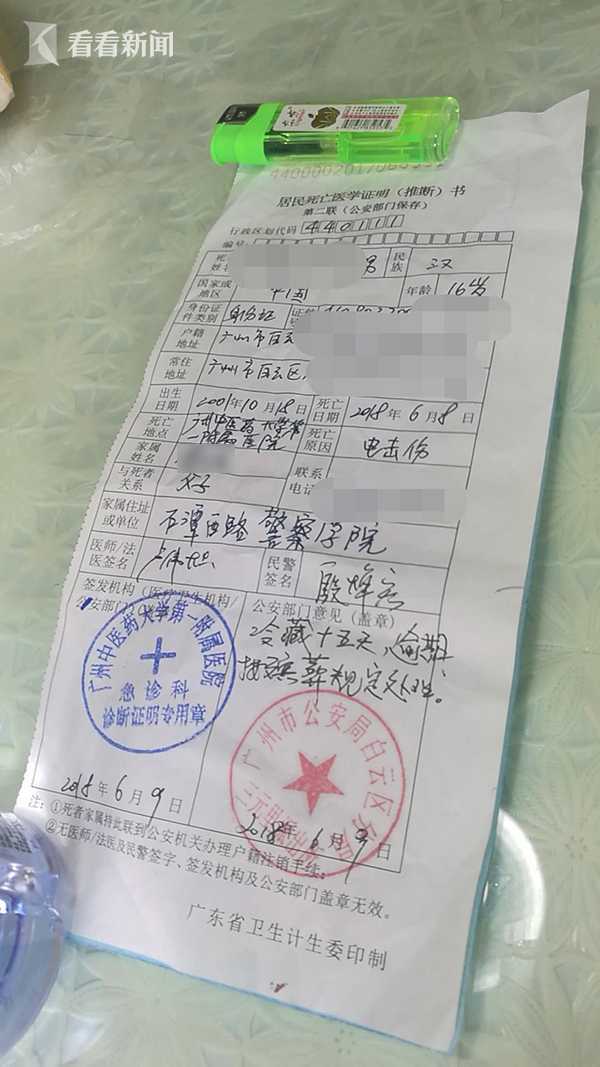 看看新闻
居民死亡医学证明（推断）书
第二联（公安部门保存）
行政区划代码 440111
编号:
死 姓 男 民族 汉
国家或地区 中国 年龄 16岁
身份证件类别 身份证
户籍地址 广州市白云
常住地址 广州市白云区
出生日期 2001年10月18日 死亡日期 2018年6月8日
死亡地点 广州中医药大学第一附属医院 死亡原因 电击伤
家属姓名 联系电话
与死者关系 父子
家属住址或单位 石潭西路警察学院
医师/法医签名 民警签名
签发机构（医疗卫生机构/公安部门 公安部门意见（盖章）
冷藏十五天，逾期
按殡葬规定处理。
广州中医药大学第一附属医院
急诊科
诊断证明专用章
广州市公安局白云区分局
2018年6月9日 2018年6月9日
注：①死者家属持此联到公安机关办理户籍注销手续；
②无医师/法医及民警签字、签发机构及公安部门盖章无效。
广东省卫生计生委印制